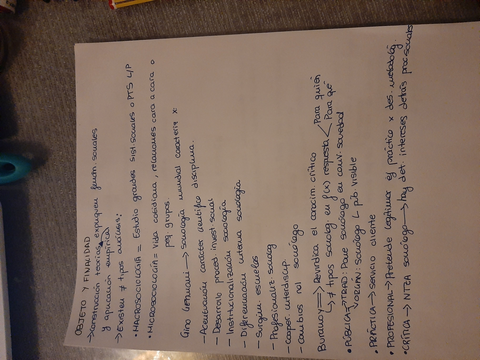 OBJETO Y FINALIDAD
→ construcción teorías expliquen fenóm sociales
y aplicación empírica
→ Existen ≠ tipos análisis:
• MACROSOCIOLOGÍA = Estudio grandes sist sociales o PTS L/P
• MICROSOCIOLOGÍA = Vida cotidiana, relaciones cara a cara o
peq grupos.
Gino Germani → Sociología mundial caracteriz x
- Acentuación carácter científico disciplina.
- Desarrollo proced invest social
- Institucionalización sociología
- Diferenciación interna sociología
- Surgim escuelas
- Profesionaliz sociolog
- Cooper interdiscip
- Cambios rol sociólogo
Burawoy ⇒ Reivindica el conocim. crítico
↳ ≠ tipos sociolog en f(x) respuesta < Para quién
Para qué
• PÚBLICA → TRAD: Pone sociólogo en conv. sociedad
ORGÁN: sociólogo púb visible
PRÁCTICA → servicio cliente
• PROFESIONAL → Pretende legitimar ej práctico x des metodológ.
CRÍTICA → NTZA sociólogo → hay det intereses detrás profesionales